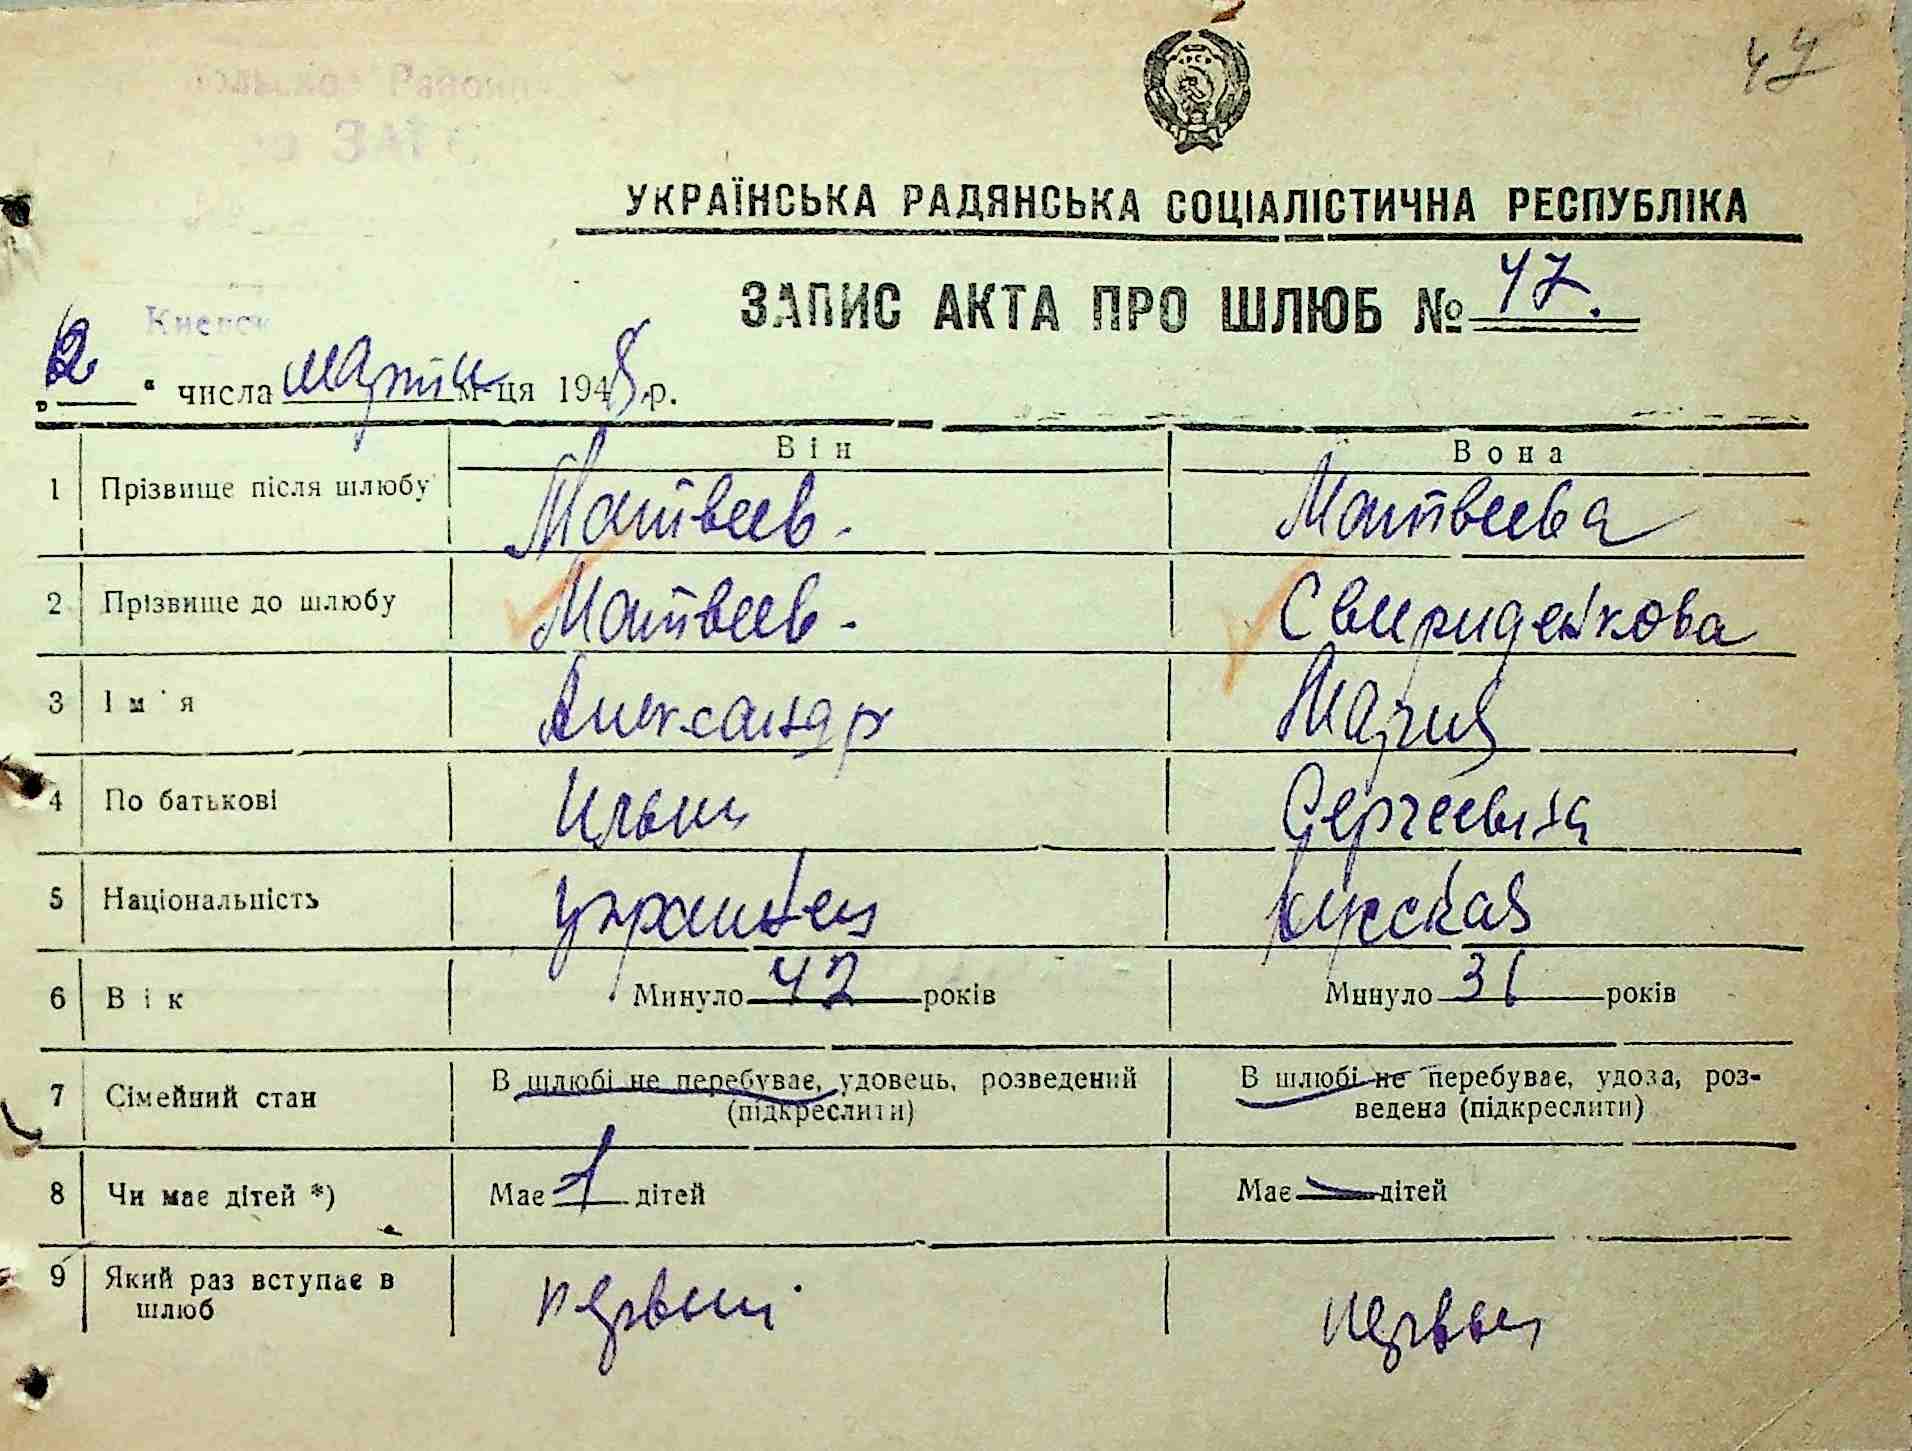 47
УКРАЇНСЬКА РАДЯНСЬКА СОЦІАЛІСТИЧНА РЕСПУБЛІКА
ЗАПИС АКТА ПРО ШЛЮБ № 47.
ЗАГС
Киевск
„2“ числа марта м-ця 1948 р.
Він Вона
1 Прізвище після шлюбу Матвеев. Матвеева
2 Прізвище до шлюбу Матвеев. Свириденкова
3 Ім'я Александр Мария
4 По батькові Ильич Сергеевна
5 Національність украинец русская
6 Вік Минуло 42 років Минуло 31 років
7 Сімейний стан В шлюбі не перебуває, удовець, розведений В шлюбі не перебуває, удова, роз-
(підкреслити) ведена (підкреслити)
8 Чи має дітей *) Має 1 дітей Має — дітей
9 Який раз вступає в первый первый
шлюб